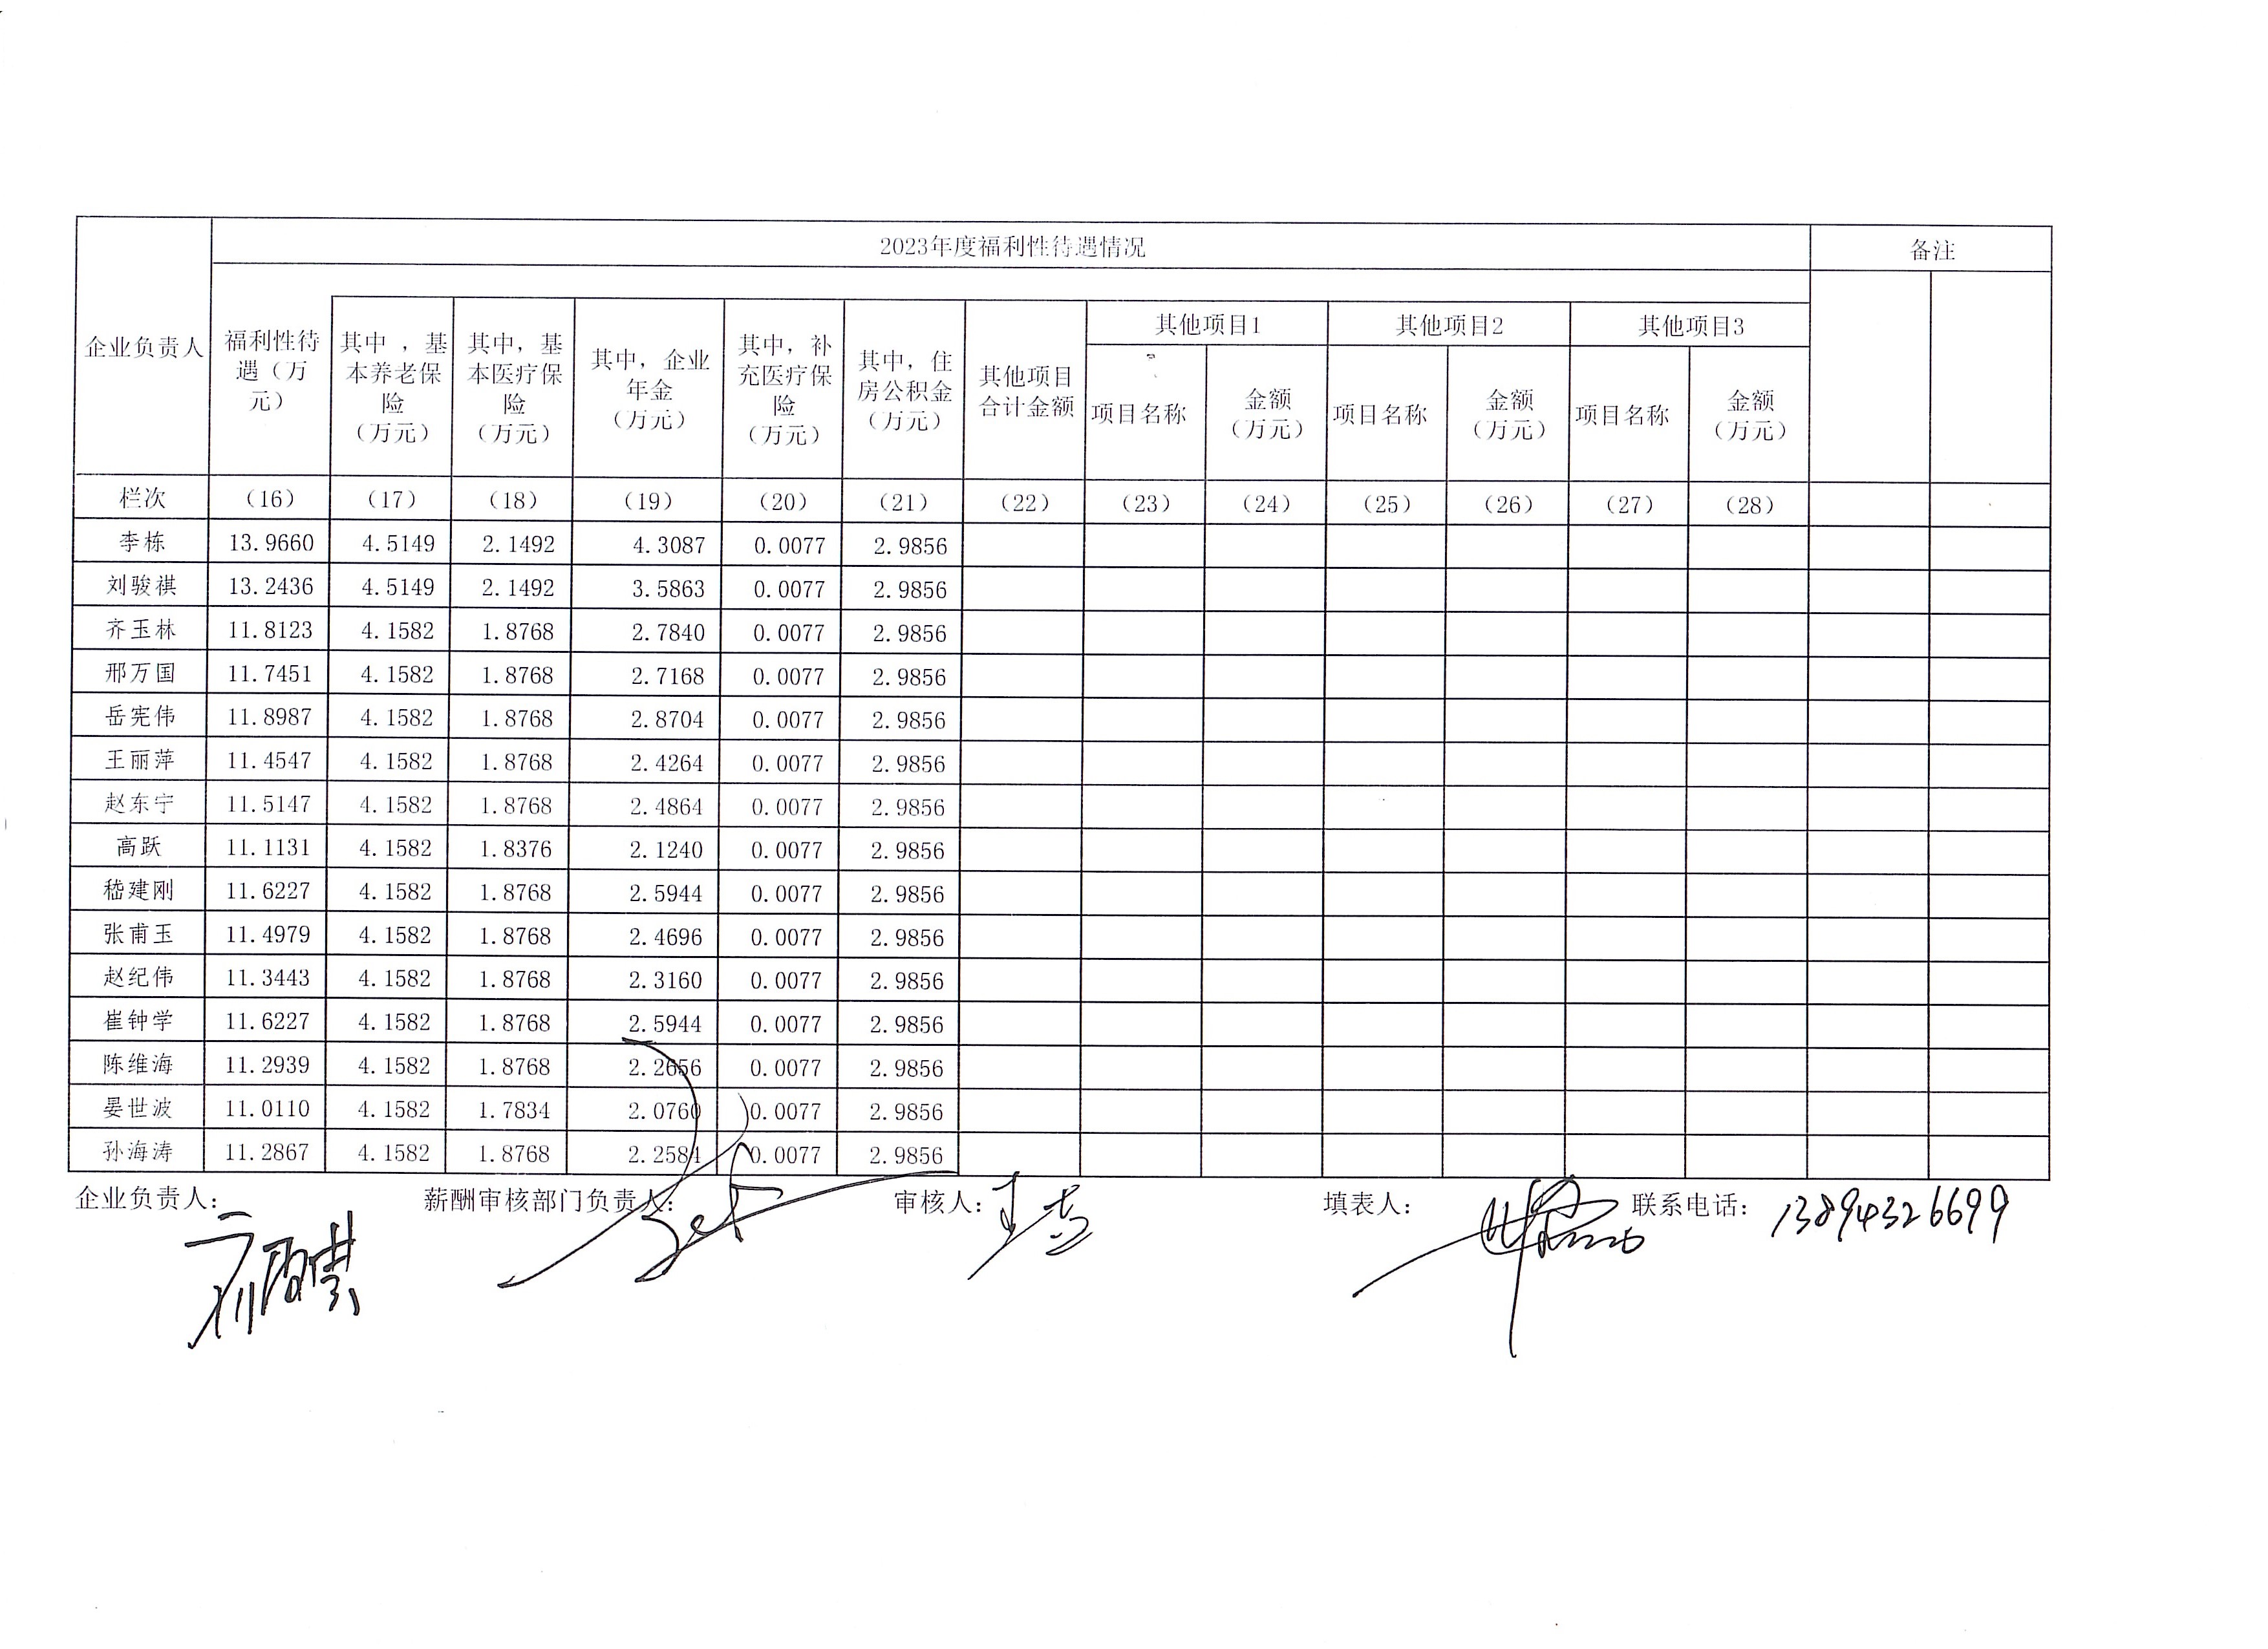 2023年度福利性待遇情况 备注
企业负责人 福利性待遇（万元） 其中，基本养老保险（万元） 其中，基本医疗保险（万元） 其中，企业年金（万元） 其中，补充医疗保险（万元） 其中，住房公积金（万元） 其他项目合计金额 其他项目1 其他项目2 其他项目3
项目名称 金额（万元） 项目名称 金额（万元） 项目名称 金额（万元）
栏次 （16） （17） （18） （19） （20） （21） （22） （23） （24） （25） （26） （27） （28）
李栋 13.9660 4.5149 2.1492 4.3087 0.0077 2.9856
刘骏祺 13.2436 4.5149 2.1492 3.5863 0.0077 2.9856
齐玉林 11.8123 4.1582 1.8768 2.7840 0.0077 2.9856
邢万国 11.7451 4.1582 1.8768 2.7168 0.0077 2.9856
岳宪伟 11.8987 4.1582 1.8768 2.8704 0.0077 2.9856
王丽萍 11.4547 4.1582 1.8768 2.4264 0.0077 2.9856
赵东宁 11.5147 4.1582 1.8768 2.4864 0.0077 2.9856
高跃 11.1131 4.1582 1.8376 2.1240 0.0077 2.9856
嵇建刚 11.6227 4.1582 1.8768 2.5944 0.0077 2.9856
张甫玉 11.4979 4.1582 1.8768 2.4696 0.0077 2.9856
赵纪伟 11.3443 4.1582 1.8768 2.3160 0.0077 2.9856
崔钟学 11.6227 4.1582 1.8768 2.5944 0.0077 2.9856
陈维海 11.2939 4.1582 1.8768 2.2656 0.0077 2.9856
晏世波 11.0110 4.1582 1.7834 2.0760 0.0077 2.9856
孙海涛 11.2867 4.1582 1.8768 2.2584 0.0077 2.9856
企业负责人： 薪酬审核部门负责人： 审核人： 填表人： 联系电话：13894326699